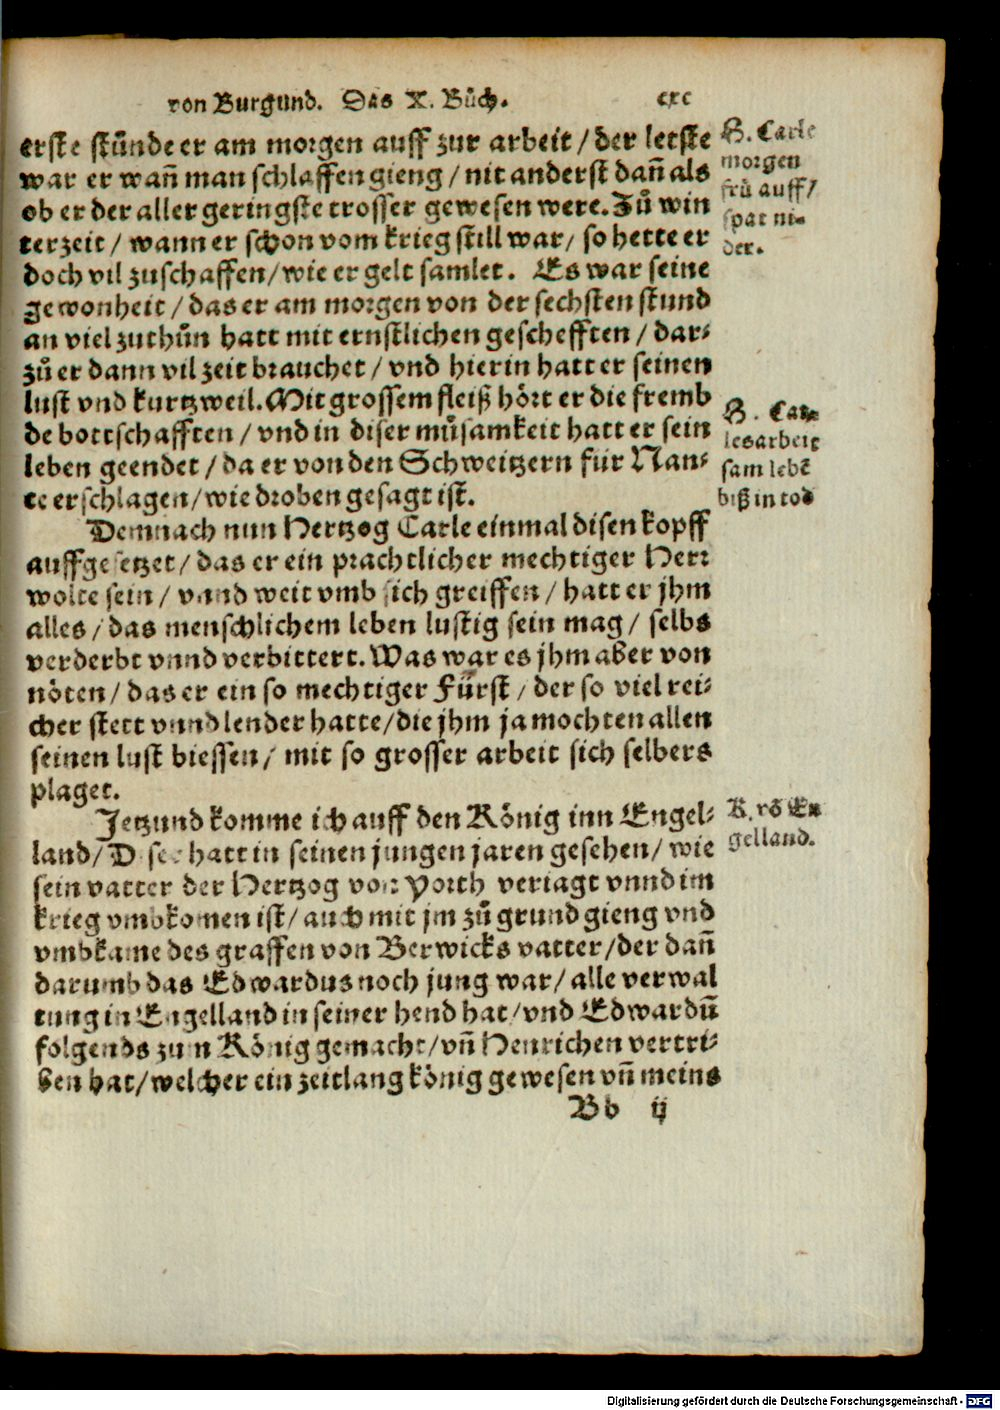 von Burgund. Das X. Bůch. cxc
erste stůnde er am morgen auff zur arbeit / der letste
war er wañ man schlaffen gieng / nit anderst dañ als
ob er der aller geringste trosser gewesen were. Zů win
terzeit / wann er schon vom krieg still war / so hette er
doch vil zuschaffen / wie er gelt samlet. Es war seine
gewonheit / das er am morgen von der sechsten stund
an viel zuthůn hatt mit ernstlichen geschefften / dar⸗
zů er dann vil zeit brauchet / vnd hierin hatt er seinen
lust vnd kurtzweil. Mit grossem fleiß hört er die fremb
de bottschafften / vnd in diser můsamkeit hatt er sein
leben geendet / da er von den Schweitzern für Nan⸗
te erschlagen / wie droben gesagt ist.
Demnach nun Hertzog Carle einmal disen kopff
auffgesetzet / das er ein prachtlicher mechtiger Herr
wolte sein / vnnd weit vmb sich greiffen / hatt er jhm
alles / das menschlichem leben lustig sein mag / selbs
verderbt vnnd verbittert. Was war es jhm aber von
nöten / das er ein so mechtiger Fürst / der so viel rei⸗
cher stett vnnd lender hatte / die jhm ja mochten allen
seinen lust biessen / mit so grosser arbeit sich selbers
plaget.
Jetzund komme ich auff den König inn Engel⸗
land / Diser hatt in seinen jungen jaren gesehen / wie
sein vatter der Hertzog von Yorth veriagt vnnd im
krieg vmbkomen ist / auch mit jm zů grund gieng vnd
vmbkame des graffen von Berwicks vatter / der dañ
darumb das Edwardus noch jung war / alle verwal
tung in Engelland in seiner hend hat / vnd Edwardū
folgends zum König gemacht / vñ Henrichen vertri⸗
ben hat / welcher ein zeitlang könig gewesen vñ meins
Bb ij
H. Carle
morgen
frů auff /
spat ni⸗
der.
H. Car⸗
les arbeit
sam lebē
biß in tod
K. vō En
gelland.
Digitalisierung gefördert durch die Deutsche Forschungsgemeinschaft - DFG